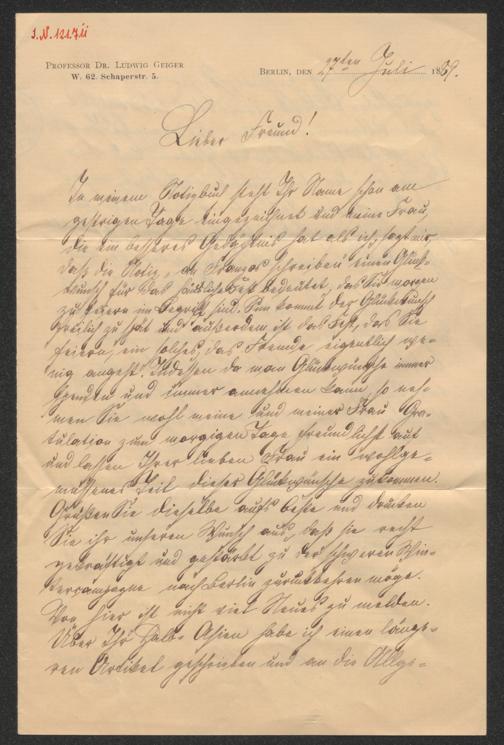 J.N. 121711
PROFESSOR DR. LUDWIG GEIGER
W. 62. Schaperstr. 5.
BERLIN, DEN 27ten Juli 1889.
Lieber Freund!
In meinem Notizbuch steht Ihr Name schon am
gestrigen Tage eingezeichnet und meine Frau,
die ein besseres Gedächtnis hat als ich, sagt mir,
daß die Notiz, an Franzos schreiben einen Glück-
wunsch für das Fest bedeutet, das Sie morgen
zu feiern im Begriff sind. Nun kommt der Glückwunsch
freilich zu spät und außerdem ist das Fest, das Sie
feiern, ein solches, das Fremde eigentlich we-
nig angeht. Indessen da man Glückwünsche immer
spenden und immer annehmen kann, so neh-
men Sie wohl meine und meiner Frau Gra-
tulation zum morgigen Tage freundlichst auf
und lassen Ihrer lieben Frau ein wohlge-
messenes Teil dieser Glückwünsche zukommen.
Grüßen Sie dieselbe aufs beste und drücken
Sie ihr unseren Wunsch aus, daß sie recht
gekräftigt und gestärkt zu der schweren Win-
tercampagne nach Berlin zurückkehren möge.
Von hier ist nicht viel Neues zu melden.
Über Ihr Halb-Asien habe ich einen länge-
ren Artikel geschrieben und an die Allge-